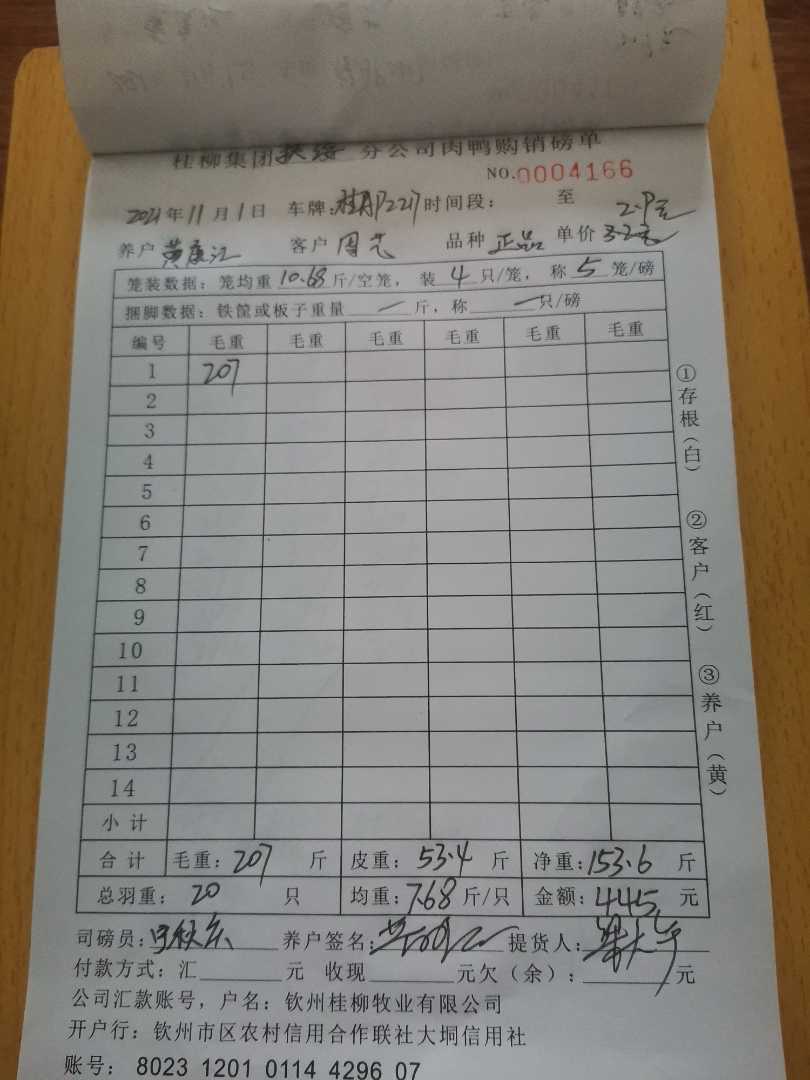 桂柳集团扶绥分公司肉鸭购销磅单
NO.0004166
2021年11月1日 车牌:桂 时间段: 至
2.9元
养户 黄 江 客户 周芝 品种 正品 单价 3.2元
笼装数据: 笼均重10.68斤/空笼, 装4只/笼, 称5笼/磅
捆脚数据: 铁筐或板子重量 一 斤, 称 一 只/磅
编号 毛重 毛重 毛重 毛重 毛重 毛重
1 207
2
3
4
5
6
7
8
9
10
11
12
13
14
小计
合计 毛重: 207 斤 皮重: 53.4 斤 净重: 153.6 斤
总羽重: 20 只 均重: 7.68 斤/只 金额: 445 元
司磅员: 养户签名: 提货人:
付款方式: 汇 元 收现 元欠(余): 元
公司汇款账号, 户名: 钦州桂柳牧业有限公司
开户行: 钦州市区农村信用合作联社大垌信用社
账号: 8023 1201 0114 4296 07
①存根(白) ②客户(红) ③养户(黄)